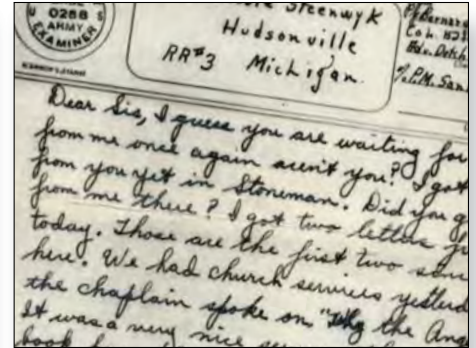 U S
0288
ARMY
EXAMINER
Steenwyk
Hudsonville
RR#3 Michigan
Pf Bernard
Co L
P.M. San
Dear Sis, I guess you are waiting for
from me once again aren't you? I got
from you yet in Stoneman. Did you g
from me there? I got two letters f
today. Those are the first two
here. We had church services yesterd
the chaplain spoke on "Why the Ang
It was a very nice
book